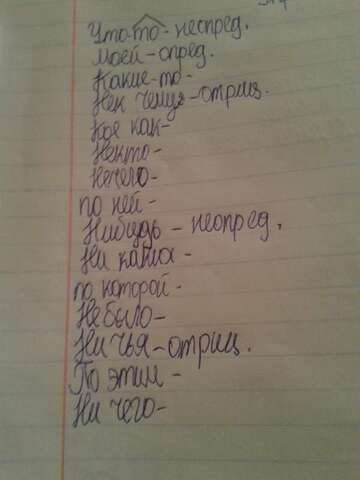 Что-то - неопред.
Моей - опред.
Какие-то -
Нек чему - отриц.
Кое как -
Некто -
Нечего -
по ней -
Нибудь - неопред.
Ни какая -
по которой -
Не было -
Ни чья - отриц.
По этим -
Ни чего -